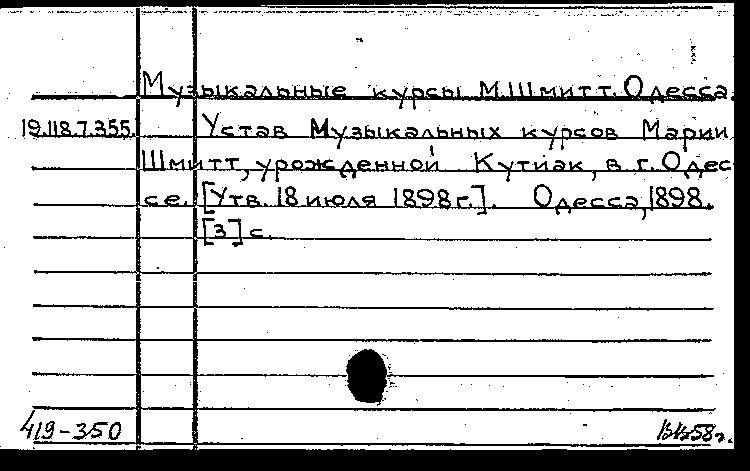 Музыкальные курсы М.Шмитт. Одесса.
19.118.7.355. Устав Музыкальных курсов Марии
Шмитт, урожденной Кутиак, в г. Одес
се. [Утв. 18 июля 1898 г.]. Одесса, 1898.
[3] с.
419-350